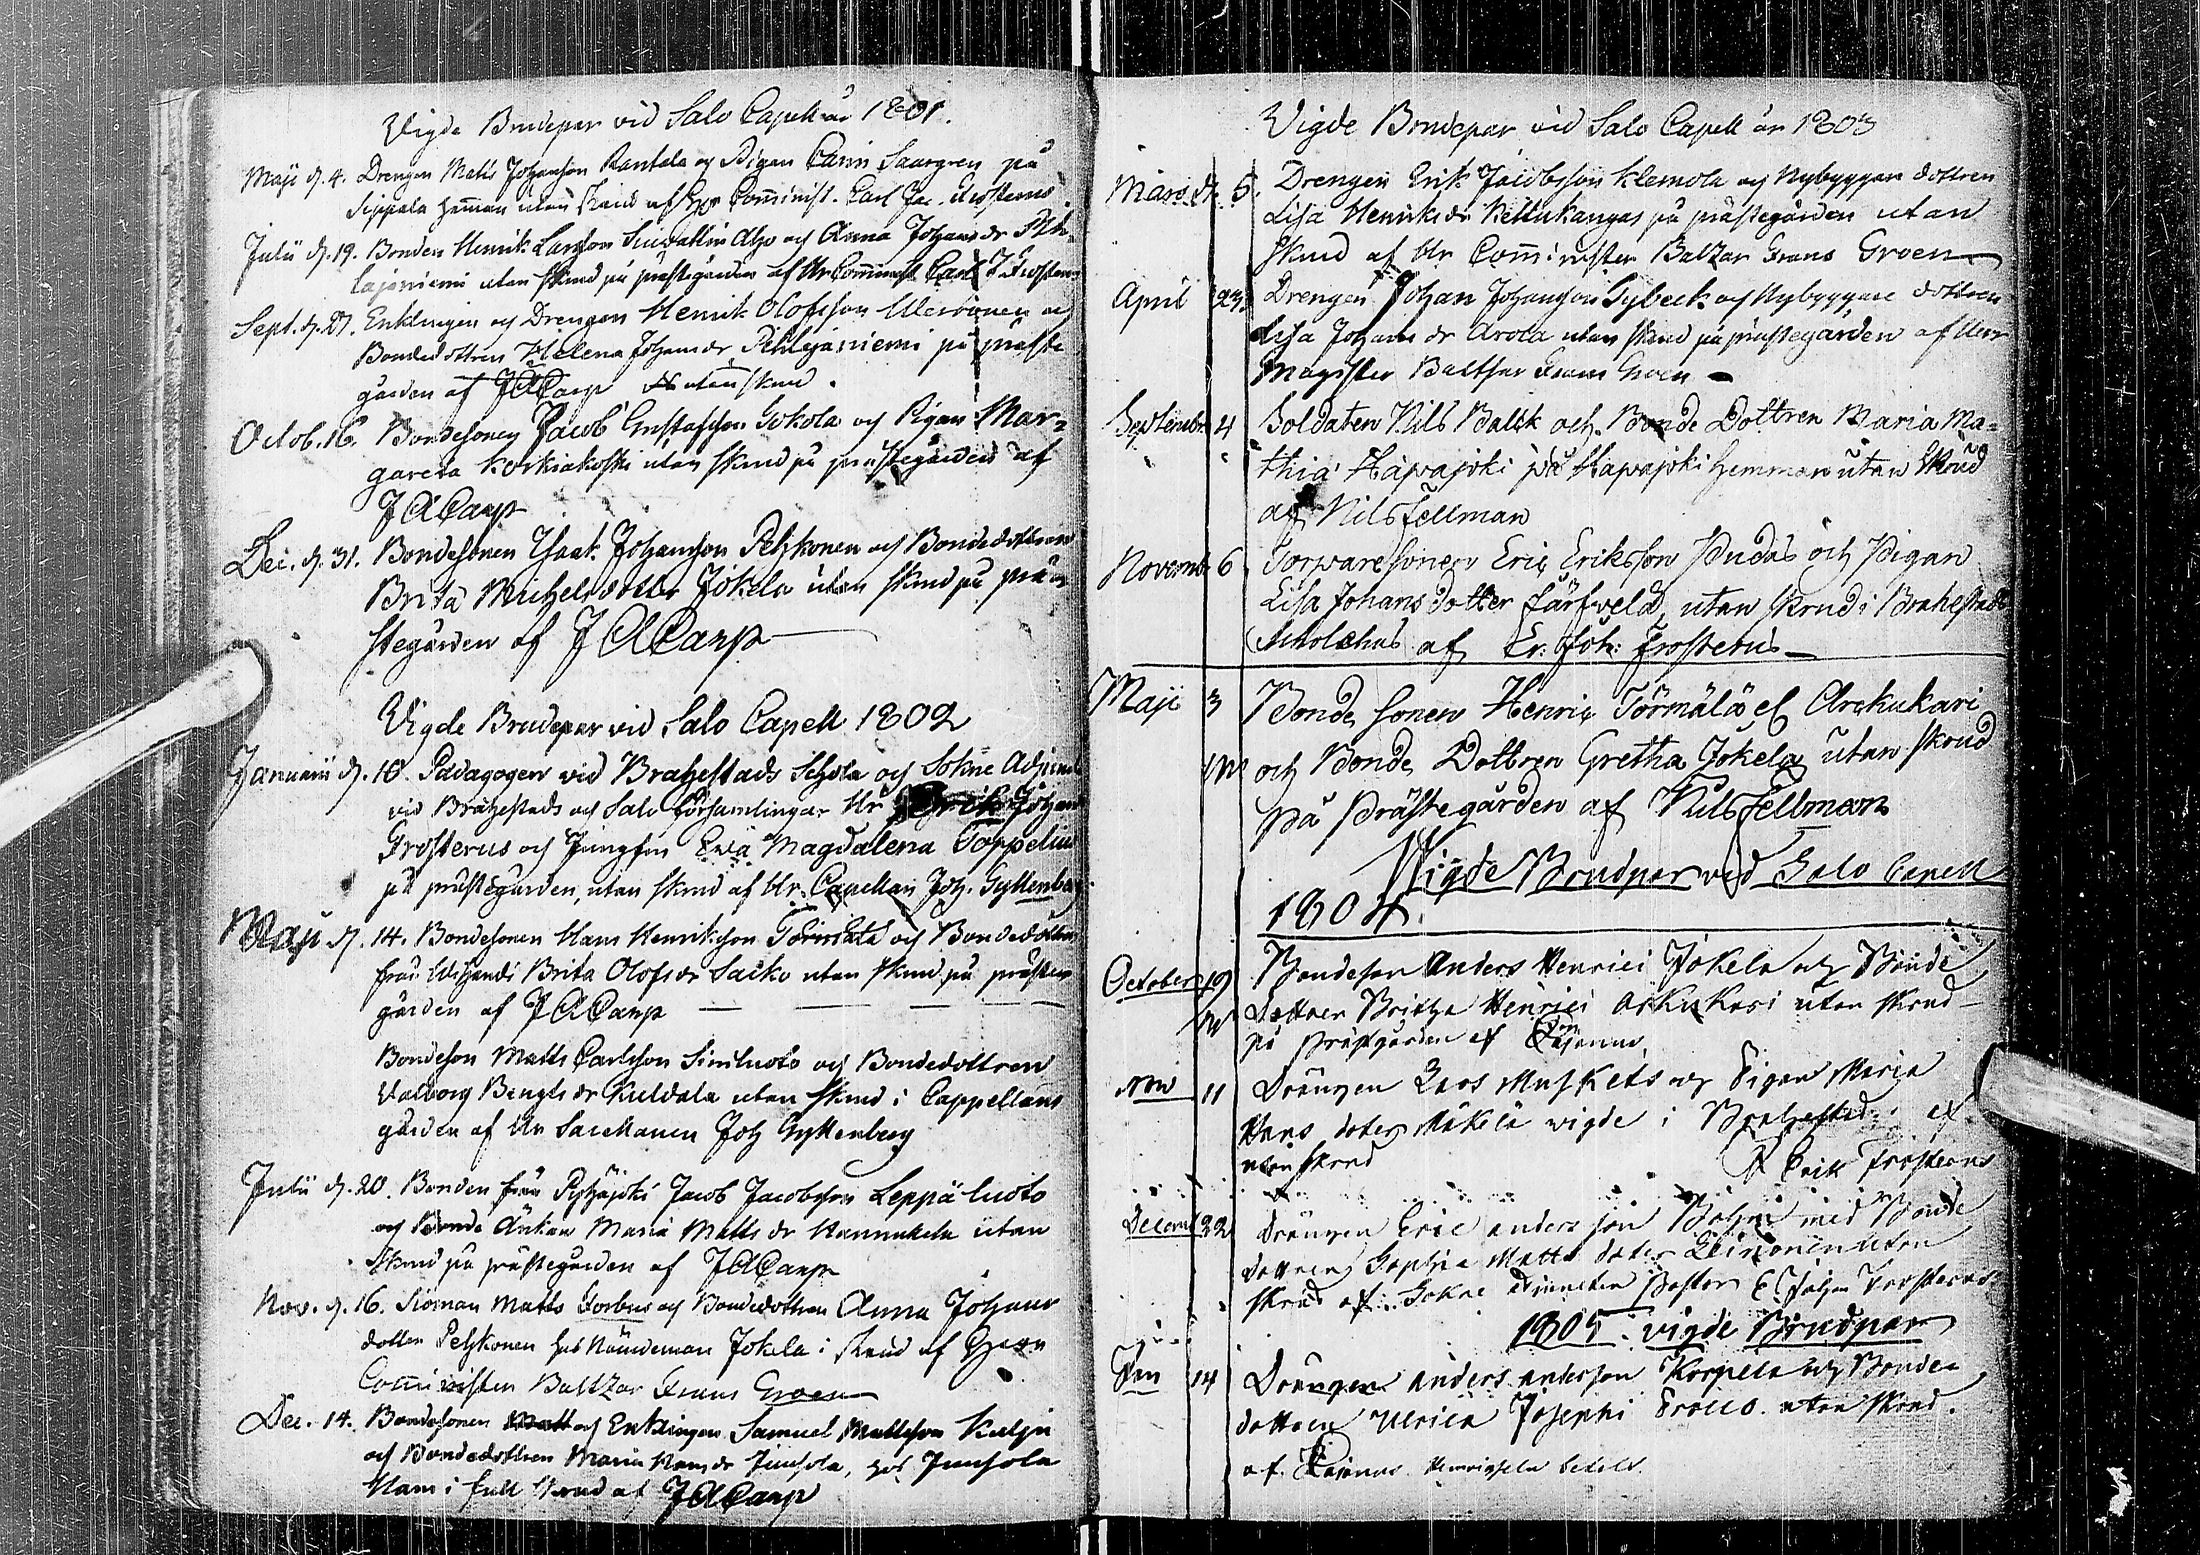 Vigde Brudepar vid Salo Capell år 1801.
Maji d. 4. Drengen Matts Johansson Rantala og Pigan Carin Saargren på
Sippala heman utan skrud af Hr Comminist. Carl Jac. Frosterus
Julii d. 19. Bonden Henrik Larsson och Anna Johansdr Pih-
lajaniemi utan skrud på prästegården af Hr Comminist Carl J Frosterus
Sept. d. 27. Enklingen og Drengen Henrik Olofsson og
Bondedottren Helena Johansdr Pihlajaniemi på präste
gården af JACarp utan skrud.
Octob. 16. Bondesonen Jacob Gustafsson Jokola og Pigan Mar-
gareta Koskiakoski utan skrud på prästegården af
JACarp
Dec. d. 31. Bondesonen Isaak Johansson Pelkonen och Bondedottren
Brita Michelsdotter Jokela utan skrud på prä-
stegården af JACarp
Vigde Brudepar vid Salo Capell 1802
Januarii d. 10. Pädagogen vid Brahestads Schola og Sokne Adjunct
vid Brahestads och Salo församlingar Hr Erik Johan
Frosterus och Jungfru Ewa Magdalena Toppelius
på prästegården, utan skrud af Hr Capellan Joh. Gyllenberg
Maji d. 14. Bondesonen Hans Henriksson Törmälä och Bondedottren
från Brita Olofsdr Saiko utan skrud på präste
gården af JACarp
Bondeson Matts Carlsson Siniluoto og Bondedottren
Valborg Bengtsdr Kuldala utan skrud i Cappellans
gården af Hr Joh Gyllenberg
Julii d. 20. Bonden från Pyhäjoki Jacob Jacobsson Leppäluoto
og Bonde Änkan Maria Matts dr Hannukela utan
skrud på prästegården af JACarp
Nov. d. 16. Sioman Matts Forbus og Bondedottren Anna Johans
dotter Pelkonen hos Nämdeman Jokela i skrud af Herr
Comministern Baltzar Frans Groen
Dec. 14. Bondesonen Matts och Enklingen Samuel Mattsson Kulju
och Bondedottren Maria Hansdr Junsola, hos Junsola
Hans i full skrud af JACarp
Vigde Brudepar vid Salo Capell år 1803
Mars d. 5. Drengen Erik Jacobsson Klemola och Nybyggare dottren
Lisa Henriksdr Kettukangas på prästegården utan
skrud af Hr Comminister Baltzar Frans Groen
April 23. Drengen Johan Johansson Gybeck och Nybyggare dottren
Lisa Johans dr Arola utan skrud på prästegården af Herr
Magister Baltsar Frans Groen
Septembr 4 Soldaten Nils Balck och Bonde Dottren Maria Ma-
thiæ Hapajoki på Hapajoki Hemman utan Skrud
af Nils Fellman
Novemb 6 Torparesonen Eric Eriksson Pudas och Pigan
Lisa Johans dotter Färfveld, utan skrud i Brahestads
Scholæhus af Er: Joh: Frosterus
Maji 3 Bonde sonen Henric Törmälä el Arckukari
och Bonde Dottren Gretha Jokela utan skrud
på Prästegården af Nils Fellman
Wigde Brudpar vid Salo Capell
1804.
October 19 Bondeson Anders Henrici Jokela och Bonde
Dottren Britha Henrici Arkukari utan skrud
på Prästgården af Cajanus
Nov 11 Drängen Lars Muskets och Pigan Maria
Hans doter Mäkelä wigde i Brahestad af
utan skrud E Erik Frosterus
Decemb 22 Drängen Eric anders son Böhm med Bonde
dottren Sophia Matts doter Leinonen utan
skrud af Sokne Pastor E Johan Frosterus
1805 vigde Brudpar
Jan 14 Drängen anders anderson Korpela och Bonde
dottren Ulrica Josephi utan skrud.
af Cajanus